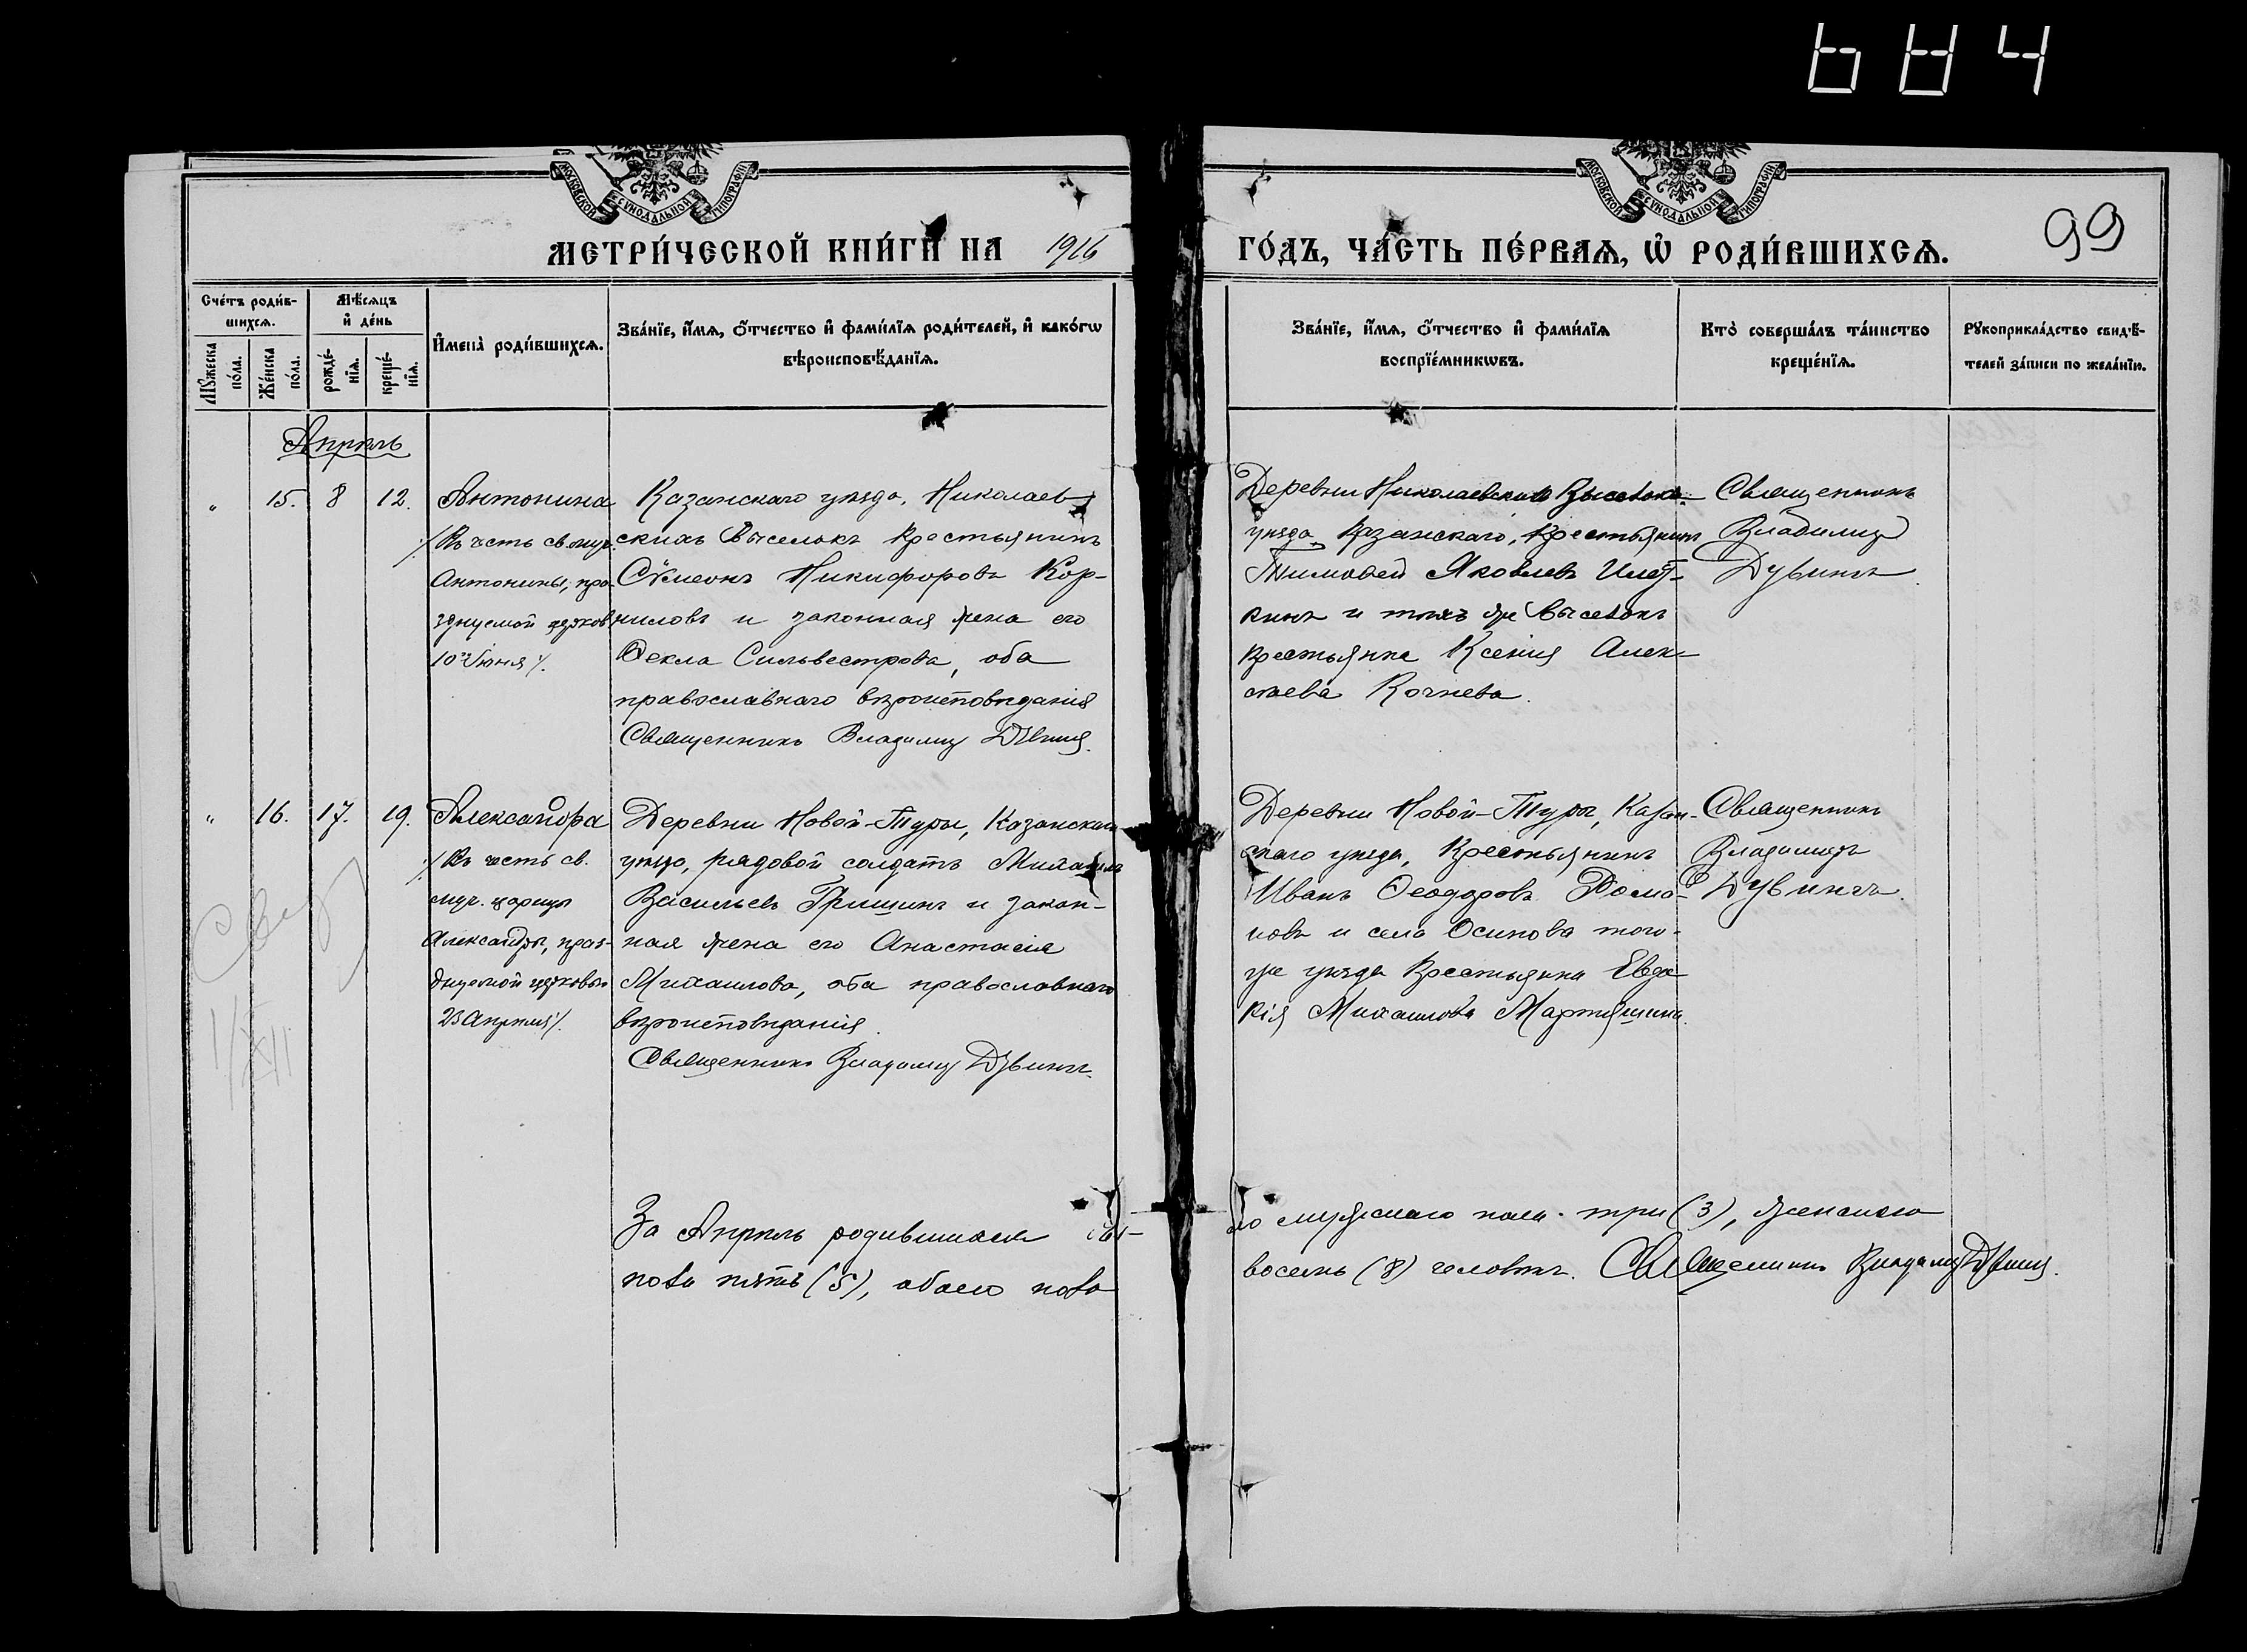 684
МОСКОВСКОЙ СУНОДАЛЬНОЙ ТИПОГРАФІИ
МОСКОВСКОЙ СУНОДАЛЬНОЙ ТИПОГРАФІИ
МЕТРИ́ЧЕСКОЙ КНИ́ГИ НА 1916
ГО́ДЪ, ЧА́СТЬ ПЕ́РВАѦ, Ѽ РОДИ́ВШИХСѦ.
99
Сче́тъ роди́в-
шихсѧ.
Мꙋ́жеска по́ла.
Же́нска по́ла.
Мѣ́сѧцъ
и҆ де́нь
рожде́-нїѧ.
креще́-нїѧ.
И҆мена̀ роди́вшихсѧ.
Зва́нїе, и҆́мѧ, ѻ҆́тчество и҆ фами́лїѧ роди́телей, и҆ како́гѡ
вѣроисповѣ́данїѧ.
Зва́нїе, и҆́мѧ, ѻ҆́тчество и҆ фами́лїѧ
воспрїе́мникѡвъ.
Кто̀ соверша́лъ та́инство
креще́нїѧ.
Рꙋкоприкла́дство свидѣ́-
телей за́писи по жела́нїю.
Апрѣль
" 15. 8 12.
Антонина
/Въ честь св. муч.
Антонины, пра-
зднуемой церков
10го Іюня/.
Казанскаго уѣзда, Николаев-
скихъ Выселокъ крестьянинъ
Сѵмеонъ Никифоровъ Кор-
ниловъ и законная жена его
Ѳекла Сильвестрова, оба
православнаго вѣроисповѣданія
Священникъ Владимиръ Дувинъ.
Деревни Николаевскихъ Выселокъ
уѣзда Казанскаго, крестьянинъ
Тимоѳей Яковлевъ Илет-
кинъ и тѣхъ же Выселокъ
крестьянка Ксенія Алек-
сѣева Кочнева.
Священникъ
Владимиръ
Дувинъ.
" 16. 17. 19.
Александра
/Въ честь св.
муч. царицы
Александры, праз-
днуемой церковью
23 Апрѣля/.
Деревни Новой-Туры, Казанскаго
уѣзда, рядовой солдатъ Михаилъ
Васильевъ Гришинъ и закон-
ная жена его Анастасія
Михаилова, оба православнаго
вѣроисповѣданія.
Священникъ Владимиръ Дувинъ.
Деревни Новой-Туры, Казан-
скаго уѣзда, крестьянинъ
Иванъ Ѳеодоровъ Рома-
новъ и села Осинова того-
же уѣзда крестьянка Евдо-
кія Михаилова Мартяшина.
Священникъ
Владимиръ
Дувинъ.
За Апрѣль родившихся
пола пять (5), обоего пола
мужскаго пола три (3), женскаго
восемь (8) человѣкъ. Священникъ Владимиръ Дувинъ.